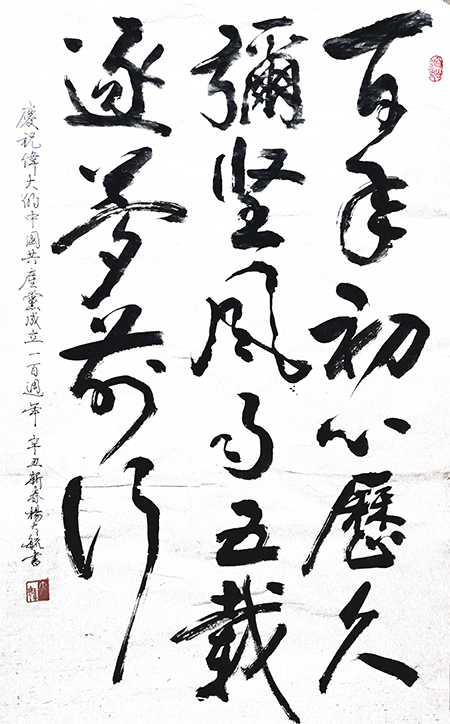 百年初心歷久
彌坚風雨五載
逐夢前行
慶祝偉大的中國共產黨成立一百週年 辛丑新春楊毓書